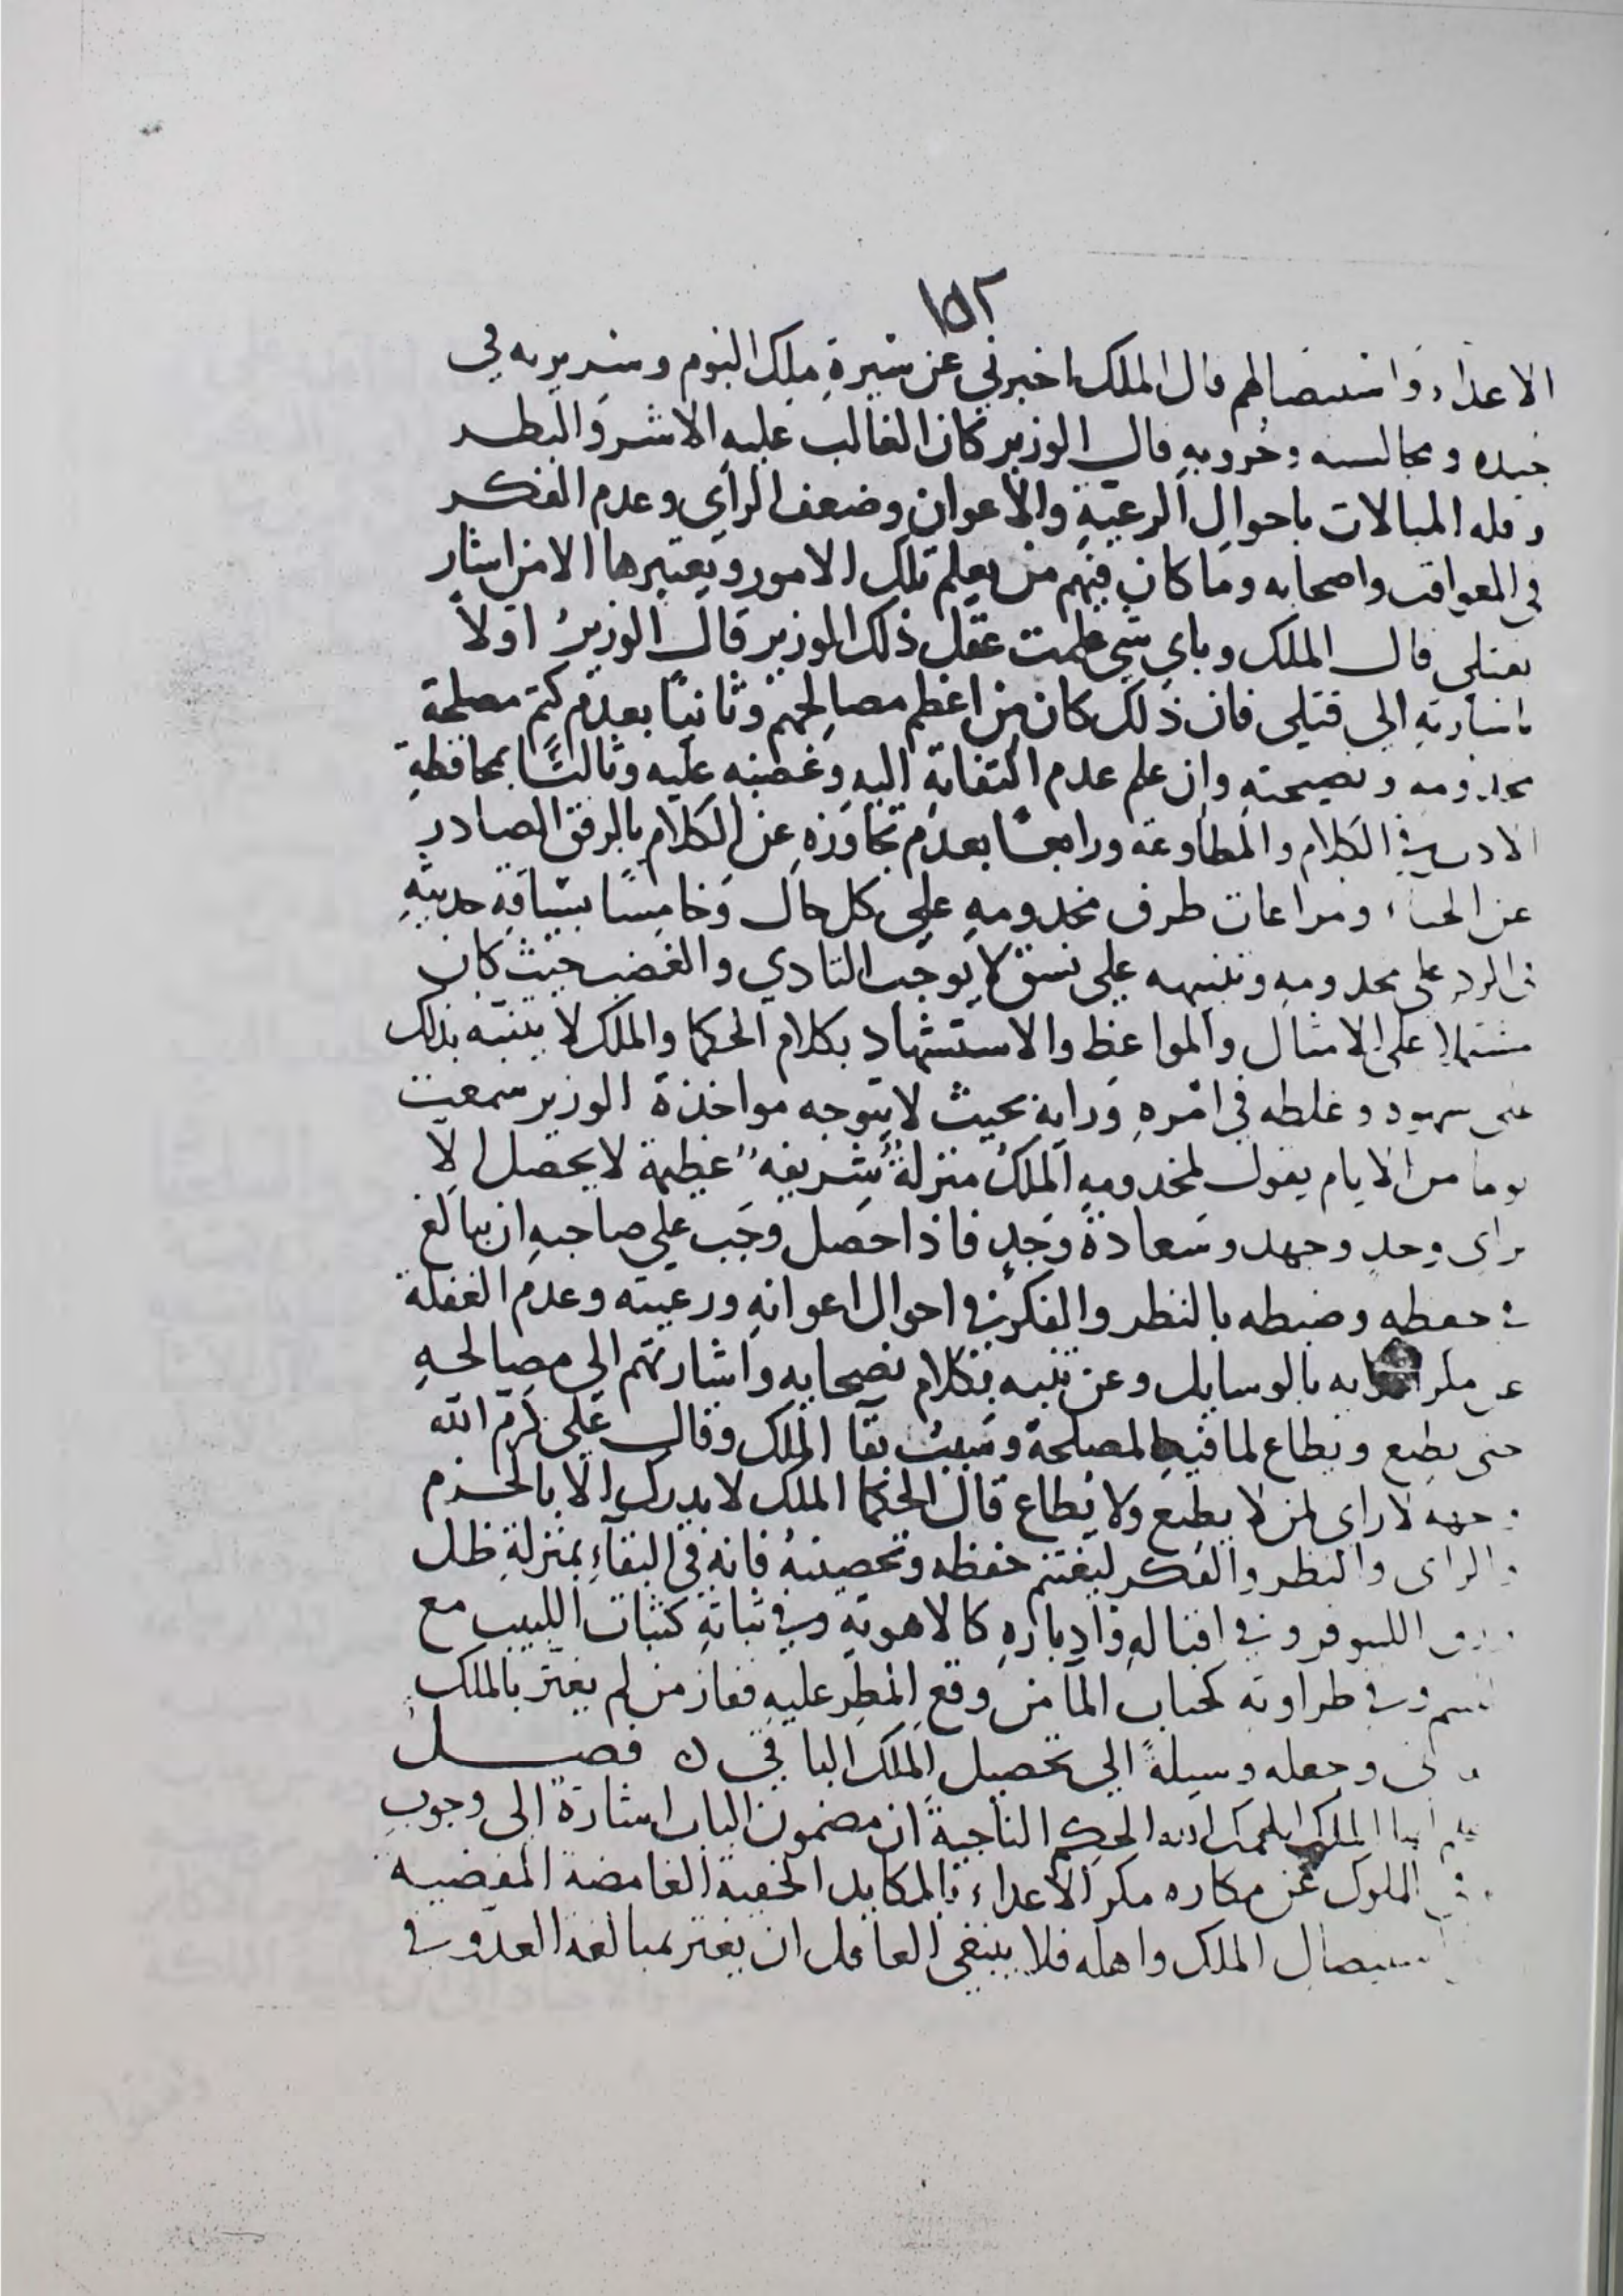 ١٥٢
الاعداء واستيصالهم قال الملك اخبرني عن سيرة ملك البوم وسريرته في
جنده ومجالسته وحروبه قال الوزير كان الغالب عليه الاشر والبطر
وقله المبالات باحوال الرعية والاعوان وضعف الراي وعدم الفكر
في العواقب واصحابه وما كان فيهم من يعلم تلك الامور ويعتبرها الا من اشار
بقتلي قال الملك وباي شي علمت عقل ذلك الوزير قال الوزير اولاً
باشارته الى قتلي فان ذلك كان من اعظم مصالحهم وثانيًا بعدم كتم مصلحة
مخدومه ونصيحته وان علم عدم التفاته اليه وغضبه عليه وثالثًا بمحافظة
الادب في الكلام والمطاوعة ورابعًا بعدم تجاوزه عن الكلام بالرفق الصادر
عن الحياء ومراعات طرف مخدومه على كل حال وخامسًا بسياقه حديثه
في الرد على مخدومه وتنبيهه على نسق لا يوجب التادي والغضب حيث كان
مشتملا على الامثال والمواعظ والاستشهاد بكلام الحكما والملك لا يتنبه بذلك
على سهوه وغلطه في امره ورايه بحيث لا يتوجه مواخذة الوزير سمعت
يوما من الايام يقول لمخدومه الملك منزلة شريفه عظيمة لا يحصل الا
براي وحد وجهد وسعادة وجد فاذا حصل وجب على صاحبه ان يبالغ
في حفظه وضبطه بالنظر والفكر في احوال اعوانه ورعيته وعدم الغفلة
عن مكر اعدايه بالوسايل وعن تنبه بكلام نصحايه واشارتهم الى مصالحه
حتى يطيع ويطاع لما فيه المصلحة وسبب بقا الملك وقال علي كرم الله
وجهه لا راى لمن لا يطيع ولا يطاع قال الحكما الملك لا يدرك الا بالحزم
والراى والنظر والفكر ليغتنم حفظه وتحصينه فانه في البقاء بمنزلة ظل
ورق اللينوفر وفي اقباله وادباره كالاهوية وفي ثباته كثبات اللبيب مع
اللئيم وفي طراوته كحباب الما من وقع المطر عليه ففاز من لم يغتر بالملك
الفاني وجعله وسيلة الى تحصيل الملك الباقي ن فصل
ايها الملك الحكم الناجية ان مضمون الباب اشارة الى وجوب
الملوك عن مكاره مكر الاعداء بالمكايد الخفية الغامضة المفضية
استيصال الملك واهله فلا ينبغي العاقل ان يغتر بمبالغة العدو في